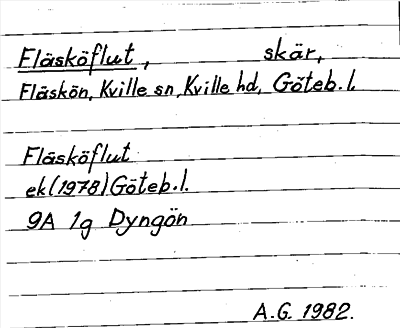 Fläsköflut, skär,
Fläskön, Kville sn, Kville hd, Göteb.l.
Fläsköflut
ek(1978)Göteb.l.
9A 1g Dyngön
A.G. 1982.